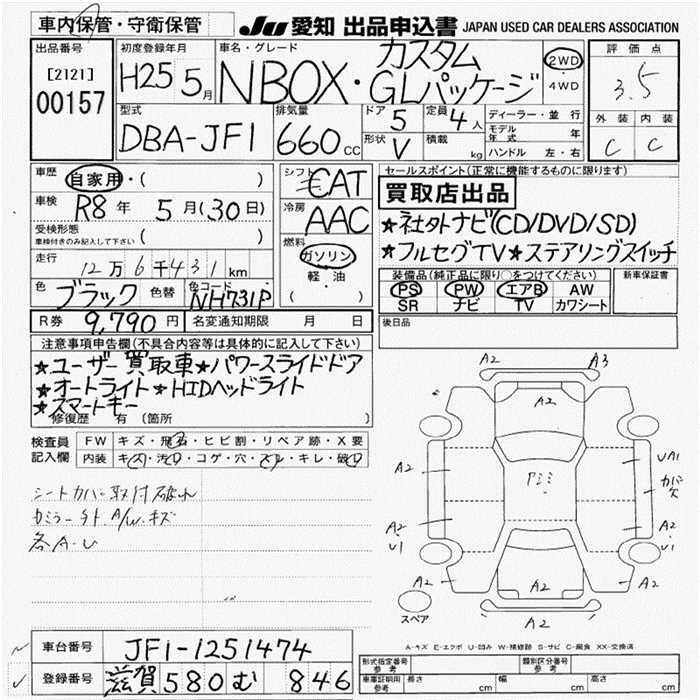 車内保管・守衛保管
JU 愛知 出品申込書 JAPAN USED CAR DEALERS ASSOCIATION
出品番号
[2121]
00157
初度登録年月
H25 5月
車名・グレード
NBOX・カスタム GLパッケージ
2WD・4WD
評価点
3.5
外装 内装
C C
型式
DBA-JF1
排気量
660cc
ドア 5
形状 V
定員 4人
積載 kg
ディーラー・並行
モデル年式 年
ハンドル 左・右
車歴 自家用・( )
車検 R8年 5月(30日)
受検形態
車検付きのみ記入して下さい ( )
走行 12万6千431km
色 ブラック 色替 色コード NH731P
R券 9,790円 名変通知期限 月 日
シフト CAT
冷房 AAC
燃料
ガソリン
軽・油
( )
セールスポイント(正常に機能するものに限ります)
買取店出品
★社外ナビ(CD/DVD/SD)
★フルセグTV★ステアリングスイッチ
装備品(純正品に限り○をつけてください)
PS PW エアB AW
SR ナビ TV カワシート
新車保証書
後日品
注意事項申告欄(不具合内容等は具体的に記入して下さい)
★ユーザー買取車★パワースライドドア
★オートライト★HIDヘッドライト
★スマートキー
修復歴 有 (箇所 )
検査員記入欄
FW キズ・飛石・ヒビ割・リペア跡・X要
内装 キズ・汚れ・コゲ・穴・スレ・キレ・破れ
シートカバー取付 破れ
カミラー外 A/W.キズ
各A.U
A2 A3
A2
A2
UA1
カバー欠
A2
U1
A2
U1
A2 A2 A2
A2
スペア
A-キズ E-エクボ U-凹み W-補修跡 S-サビ C-腐食 XX-交換済
車台番号 JF1-1251474
登録番号 滋賀 580 む 846
形式指定番号 参考
類別区分番号 参考
車庫証明用 参考 長さ cm 幅 cm 高さ cm